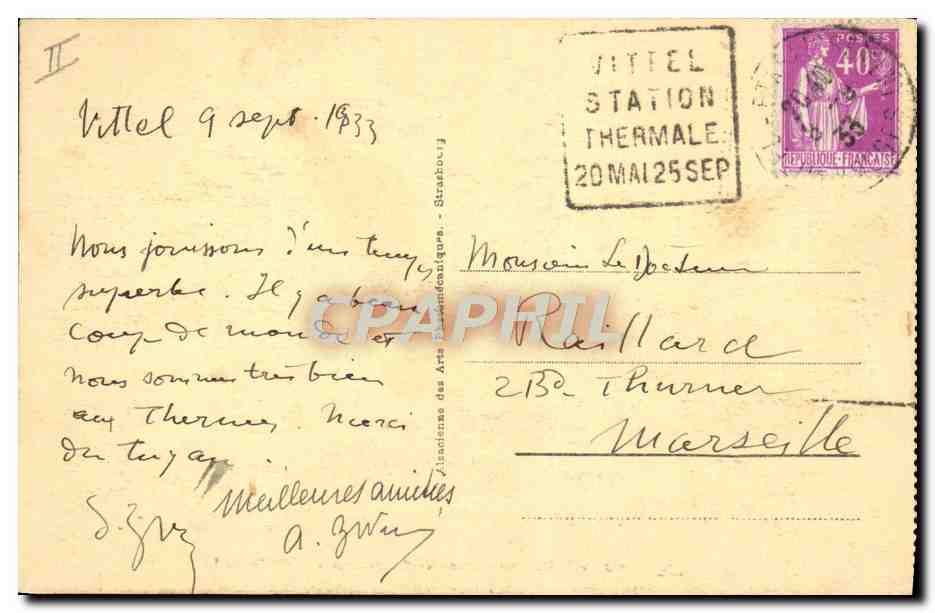 II
Vittel 9 sept. 1933
Nous jouissons d'un temps
superbe. Il y a beau
coup de monde et
nous sommes très bien
aux Thermes. Merci
du tuyau.
Meilleures amitiés
A.
Alsacienne des Arts Photomécaniques. - Strasbourg
VITTEL
STATION
THERMALE
20 MAI 25 SEP
POSTES
40c
REPUBLIQUE-FRANÇAISE
Monsieur Le Docteur
Raillard
2 Bd Thurner
Marseille
CPAPHIL